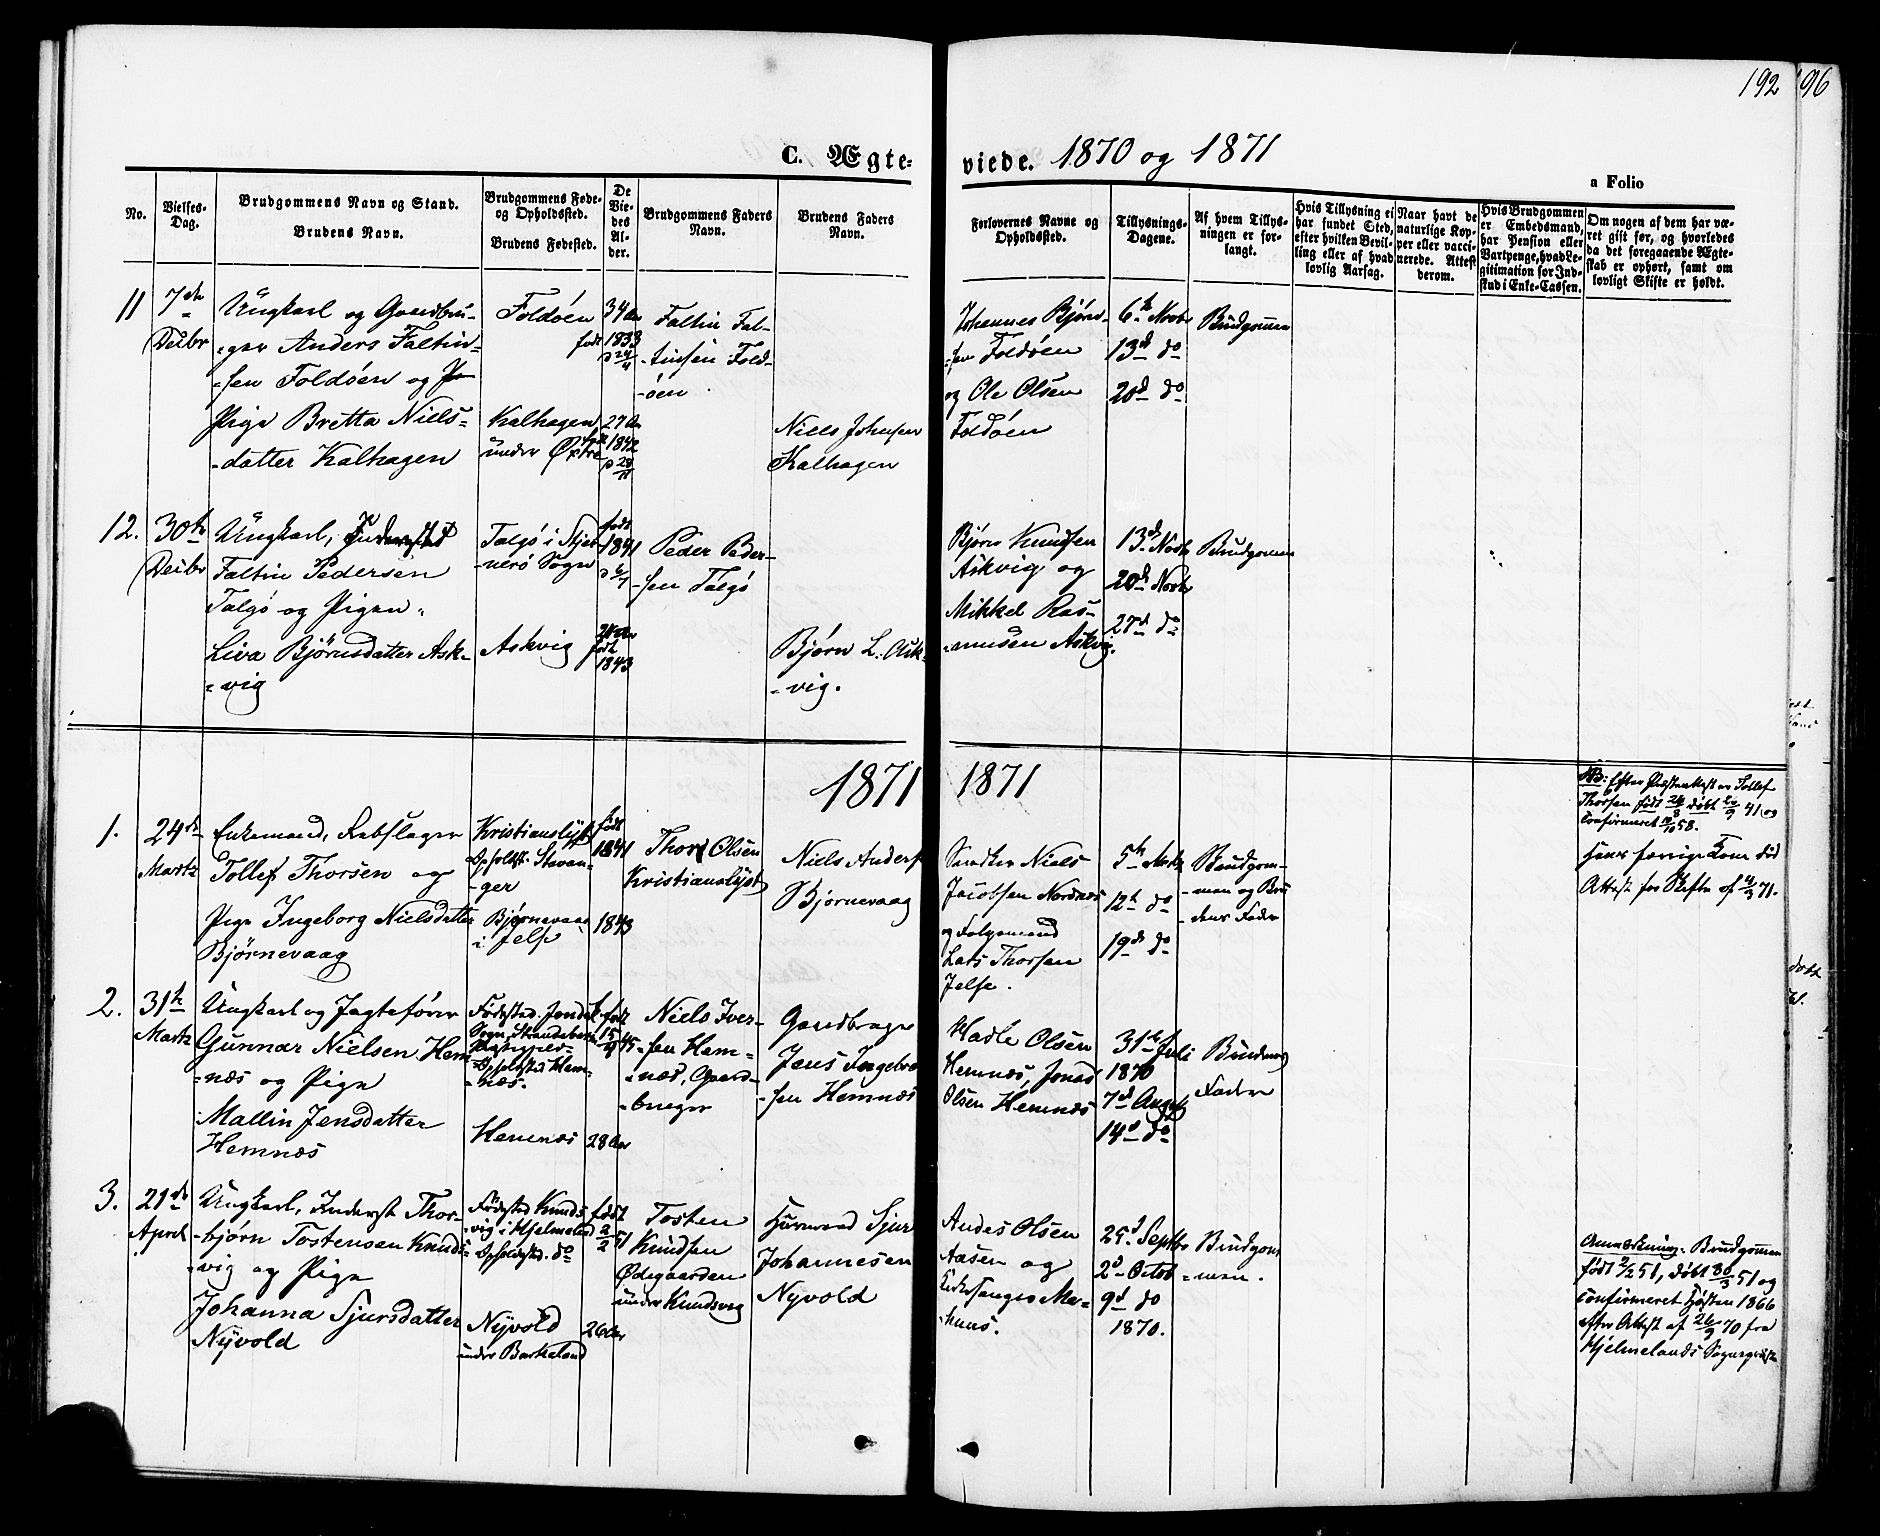 192 96
C. Ægteviede. 1870 og 1871
a Folio
No.
Vielses-
Dag.
Brudgommens Navn og Stand.
Brudens Navn.
Brudgommens Føde-
og Opholdssted.
Brudens Fødested.
De
Vie-
des
Al-
der.
Brudgommens Faders
Navn.
Brudens Faders
Navn.
Forlovernes Navne og
Opholdssted.
Tillysnings-
Dagene.
Af hvem Tillys-
ningen er for-
langt.
Hvis Tillysning ei
har fundet Sted,
efter hvilken Bevil-
ling eller af hvad
lovlig Aarsag.
Naar havt de
naturlige Kop-
per eller vacci-
nerede. Attest
derom.
Hvis Brudgommen
er Embedsmand,
har Pension eller
Vartpenge, hvad Le-
gitimation for Ind-
skud i Enke-Cassen.
Om nogen af dem har væ-
ret gift før, og hvorledes
da det foregaaende Ægte-
skab er ophørt, samt om
lovligt Skifte er holdt.
11
7de
Decbr
Ungkarl og Gaardbru-
-ger Anders Faltin-
-sen Foldöen og
Pige Bretta Niels-
-datter Kalhagen
Foldöen
Kalhagen
under Østre
34 Aar
født
1833
27 Aar
1842
Faltin Fal-
-tinsen Fold-
-öen
Niels Johnsen
Kalhagen
Johannes Bjørn-
-sen Foldöen
og Ole Olsen
Foldöen
6te Novbr
13de do
20de do
Brudgommen
12.
30te
Decbr
Ungkarl, Inderst
Faltin Pedersen
Talgö og Pigen
Liva Björnsdatter Ask-
-vig
Talgö i Stjer-
-nerö Sogn
Askvig
født
1841
født
1843
Peder Peder-
-sen Talgö
Bjørn L. Ask-
-vig.
Bjørn Knudsen
Askvig og
Mikkel Ras-
-mussen Askvig.
13de Novbr
20de Novbr
27de do
Brudgommen
1871 1871
1.
24de
Martz
Enkemand, Rebslager
Tollef Thorsen og
Pige Ingeborg Nielsdatter
Bjørnevaag
Kristianslyst
Opholdst. Stavan-
-ger
Bjørnevaag
i Jelse
født
1841
1843
Thor Olsen
Kristianslyst
Niels Anders
Bjørnevaag
Snedker Niels
Jacobsen Nordnæs
og Følgemand
Lars Thorsen
Jelse.
5te Martz
12te do
19de do
Brudgom-
-men og Bru
-dens Fader
NB: Efter Præsteattest er Tollef
Thorsen født 26/8 døbt 20/9 41 og
Confirmeret 10/10 58.
Hans forrige Kone død
Attest for Skifte af 4/3 71.
2.
31te
Martz
Ungkarl og Jagtefører
Gunnar Nielsen Hem-
-næs og Pige
Mallin Jensdatter
Hemnæs
Fødested. Jondal
Sogn, Strandebarm
Præstegjeld-
-Opholdsted Hem-
-næs.
Hemnæs
født
15/9 45
28 Aar
Niels Iver-
-sen Hem-
-næs, Gaard-
-bruger
Gaardbruger
Jens Ingebre
-sen Hemnæs
Hadle Olsen
Hemnæs, Jonas
Olsen Hemnæs
31te Juli
1870
7de Augst
14de do
Brudens
Fader
3.
21de
April
Ungkarl, Inderst Thor-
-bjørn Tostensen Knuds-
-vig og Pige
Johanna Sjursdatter
Nyvold
Fødested Knuds-
-vig i Hjelmeland
Opholdsted. do
Nyvold
under Barkeland
født
2/2 51
26 Aar
Tosten
Knudsen
Ødegaarden
under Knudsvig
Huusmand Sjur
Johannesen
Nyvold
Andes Olsen
Aasen og
Kirkesanger Ma-
-huus.
25de Septbr
2den Octob
9de do
1870.
Brudgom
-men.
Anmærkning. Brudgommen
født 2/2 51, døbt 30/3 51 og
confirmeret Høsten 1866
efter Attest af 26/9 70 fra
Hjelmelands Sognepræst